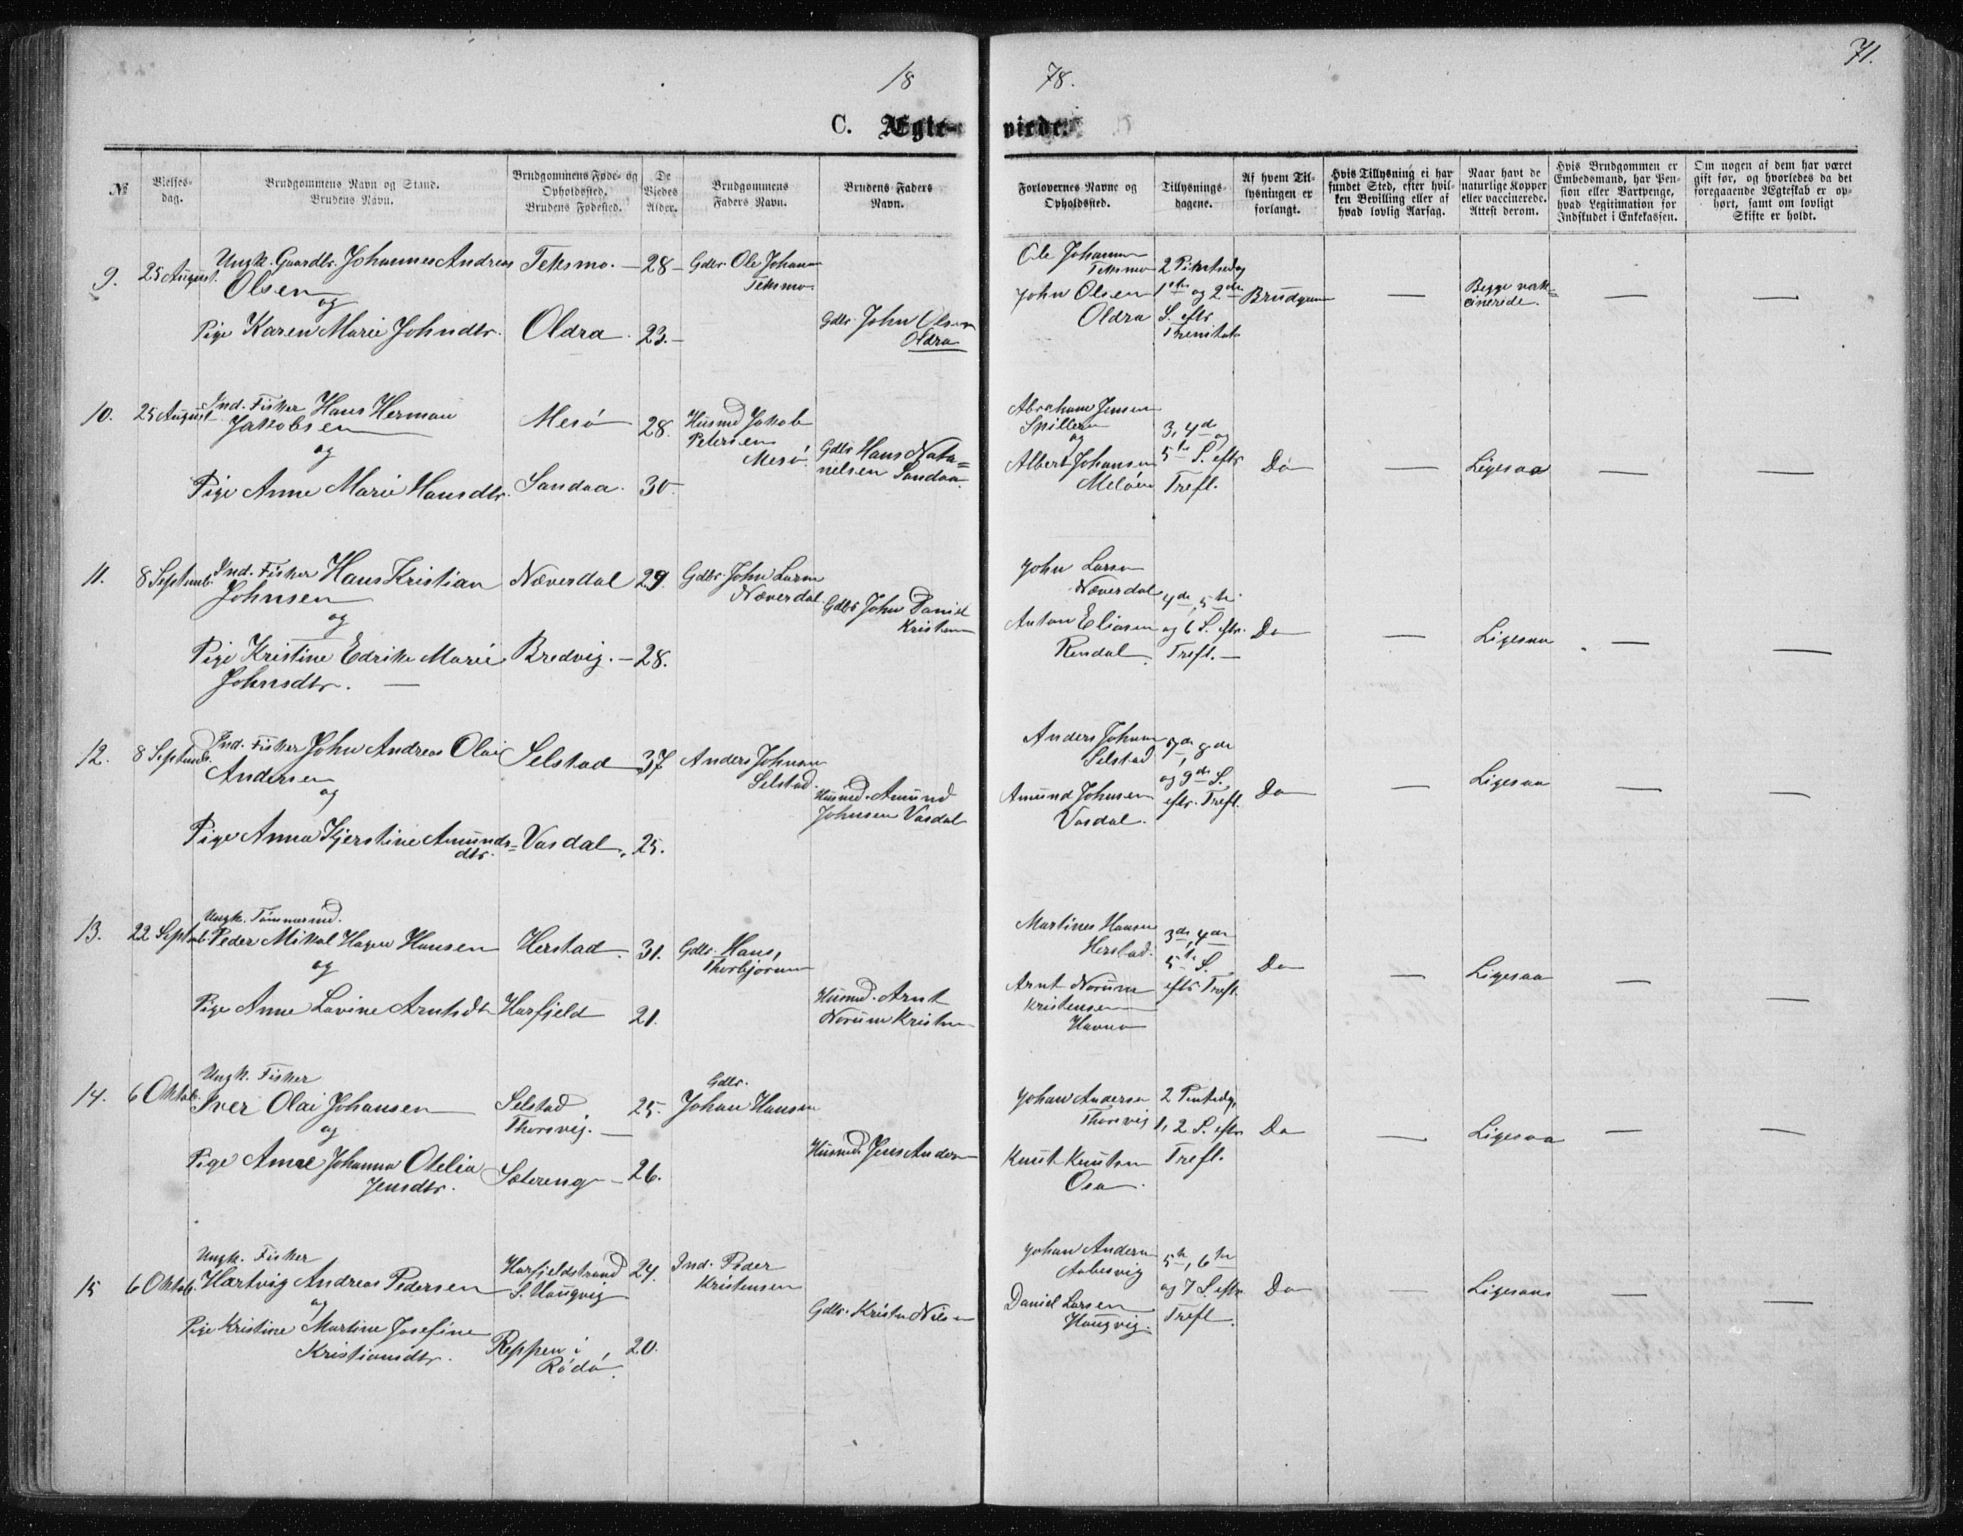 71.
18 78.
C. Ægte- viede.
№
Vielses-
dag.
Brudgommens Navn og Stand.
Brudens Navn.
Brudgommens Føde- og
Opholdssted.
Brudens Fødested.
De
Viedes
Alder.
Brudgommens
Faders Navn.
Brudens Faders
Navn.
Forlovernes Navne og
Opholdssted.
Tillysnings-
dagene.
Af hvem Til-
lysningen er
forlangt.
Hvis Tillysning ei har
fundet Sted, efter hvil-
ken Bevilling eller af
hvad lovlig Aarsag.
Naar havt de
naturlige Kopper
eller vaccinerede.
Attest derom.
Hvis Brudgommen er
Embedsmand, har Pen-
sion eller Vartpenge,
hvad Legitimation for
Indskudet i Enkekassen.
Om nogen af dem har været
gift før, og hvorledes da det
foregaaende Ægteskab er op-
hørt, samt om lovligt
Skifte er holdt.
9. 25 August. Ungk. Gaardbr. Johannes Andreas
Olsen
og
Pige Karen Marie Johndtr.
Teksmo. — 28 —
Oldra. 23. —
Gdbr. Ole Johan
Teksmo
Gdbr. John Olsen
Oldra
Ole Johansen
Teksmo
John Olsen
Oldra
1ste og 2den
S. eftr
Brudgom
—
Begge vak-
cinerede.
—
—
10. 25 August Ind. Fisker Hans Herman
Jakobsen
og
Pige Anne Marie Hansdtr.
Mesø 28.
Sandaa. 30.
Husmd Jakob
Petersen
Mesø.
Gdbr Hans Nata=
nielsen Sandaa.
Abraham Jensen
Spilderen
og
Albert Johansen
Meløen
3, 4de og
5te S. eftr
Trefl.
Do
—
Ligesaa
—
—
11. 8 Septemb. Ind. Fisker Hans Kristian
Johnsen
og
Pige Kristine Edrike Marie
Johnsdtr. —
Næverdal 29.
Bredvig. — 28.
Gdbr. John Larsen
Næverdal
Gdbr John Daniel
Kristensen
John Larsen
Næverdal
Anton Eliasen
Rendal.
4de, 5te
og 6 S. eftr.
Trefl. —
Do
—
Ligesaa
—
—
12. 8 Septemb. Ind. Fisker John Andreas Olai
Andersen
og
Pige Anna Kjerstine Amunds=
dtr.
Selstad 37
Vasdal. 25.
Anders Johnsen
Selstad.
Husmd. Amund
Johnsen Vasdal
Anders Johnsen
Selstad
Amund Johnsen
Vasdal.
7de, 8de
og 9de S.
eftr. Trefl.
Do
—
Ligesaa
—
—
13. 22 Septemb. Ungk. Tømmermd.
Peder Mikal Hagen Hansen
og
Pige Anne Lavine Arntsdtr
Herstad. 31.
Harfjeld 21.
Gdbr. Hans
Thorbjørnsen
Husmd. Arnt
Norum Kristensen
Martines Hansen
Herstad.
Arnt Norum
Kristensen
Havnen
3de, 4de
5te S.
eftr Trefl.
Do
—
Ligesaa
—
—
14. 6 Oktob. Ungk. Fisker
Iver Olai Johansen
og
Pige Anne Johanna Otelia
Jensdtr.
Selstad
Thorsvig. — 25.
Sætereng — 26.
Gdbr.
Johan Hansen
Husmd. Jens Andersen
Johan Andersen
Thorsvig
Knut Knutsen
Osa.
2 Pintsedg,
1, 2 S. eftr
Trefl.
Do
—
Ligesaa
—
—
15 6 Oktob. Ungk. Fisker
Hartvig Andreas Pedersen
og
Pige Kristine Martine Josefine
Kristiansdtr.
Harfjeldstrand
S. Haugvig 24.
Reppen i
Rødø. 20.
Ind. Peder
Kristensen
Gdbr. Kristen Nilsen
Johan Andersen
Aabesvig
Daniel Larsen
Haugvig.
5te, 6te
og 7 S. eftr.
Trefl.
Do
—
Ligesaa
—
—